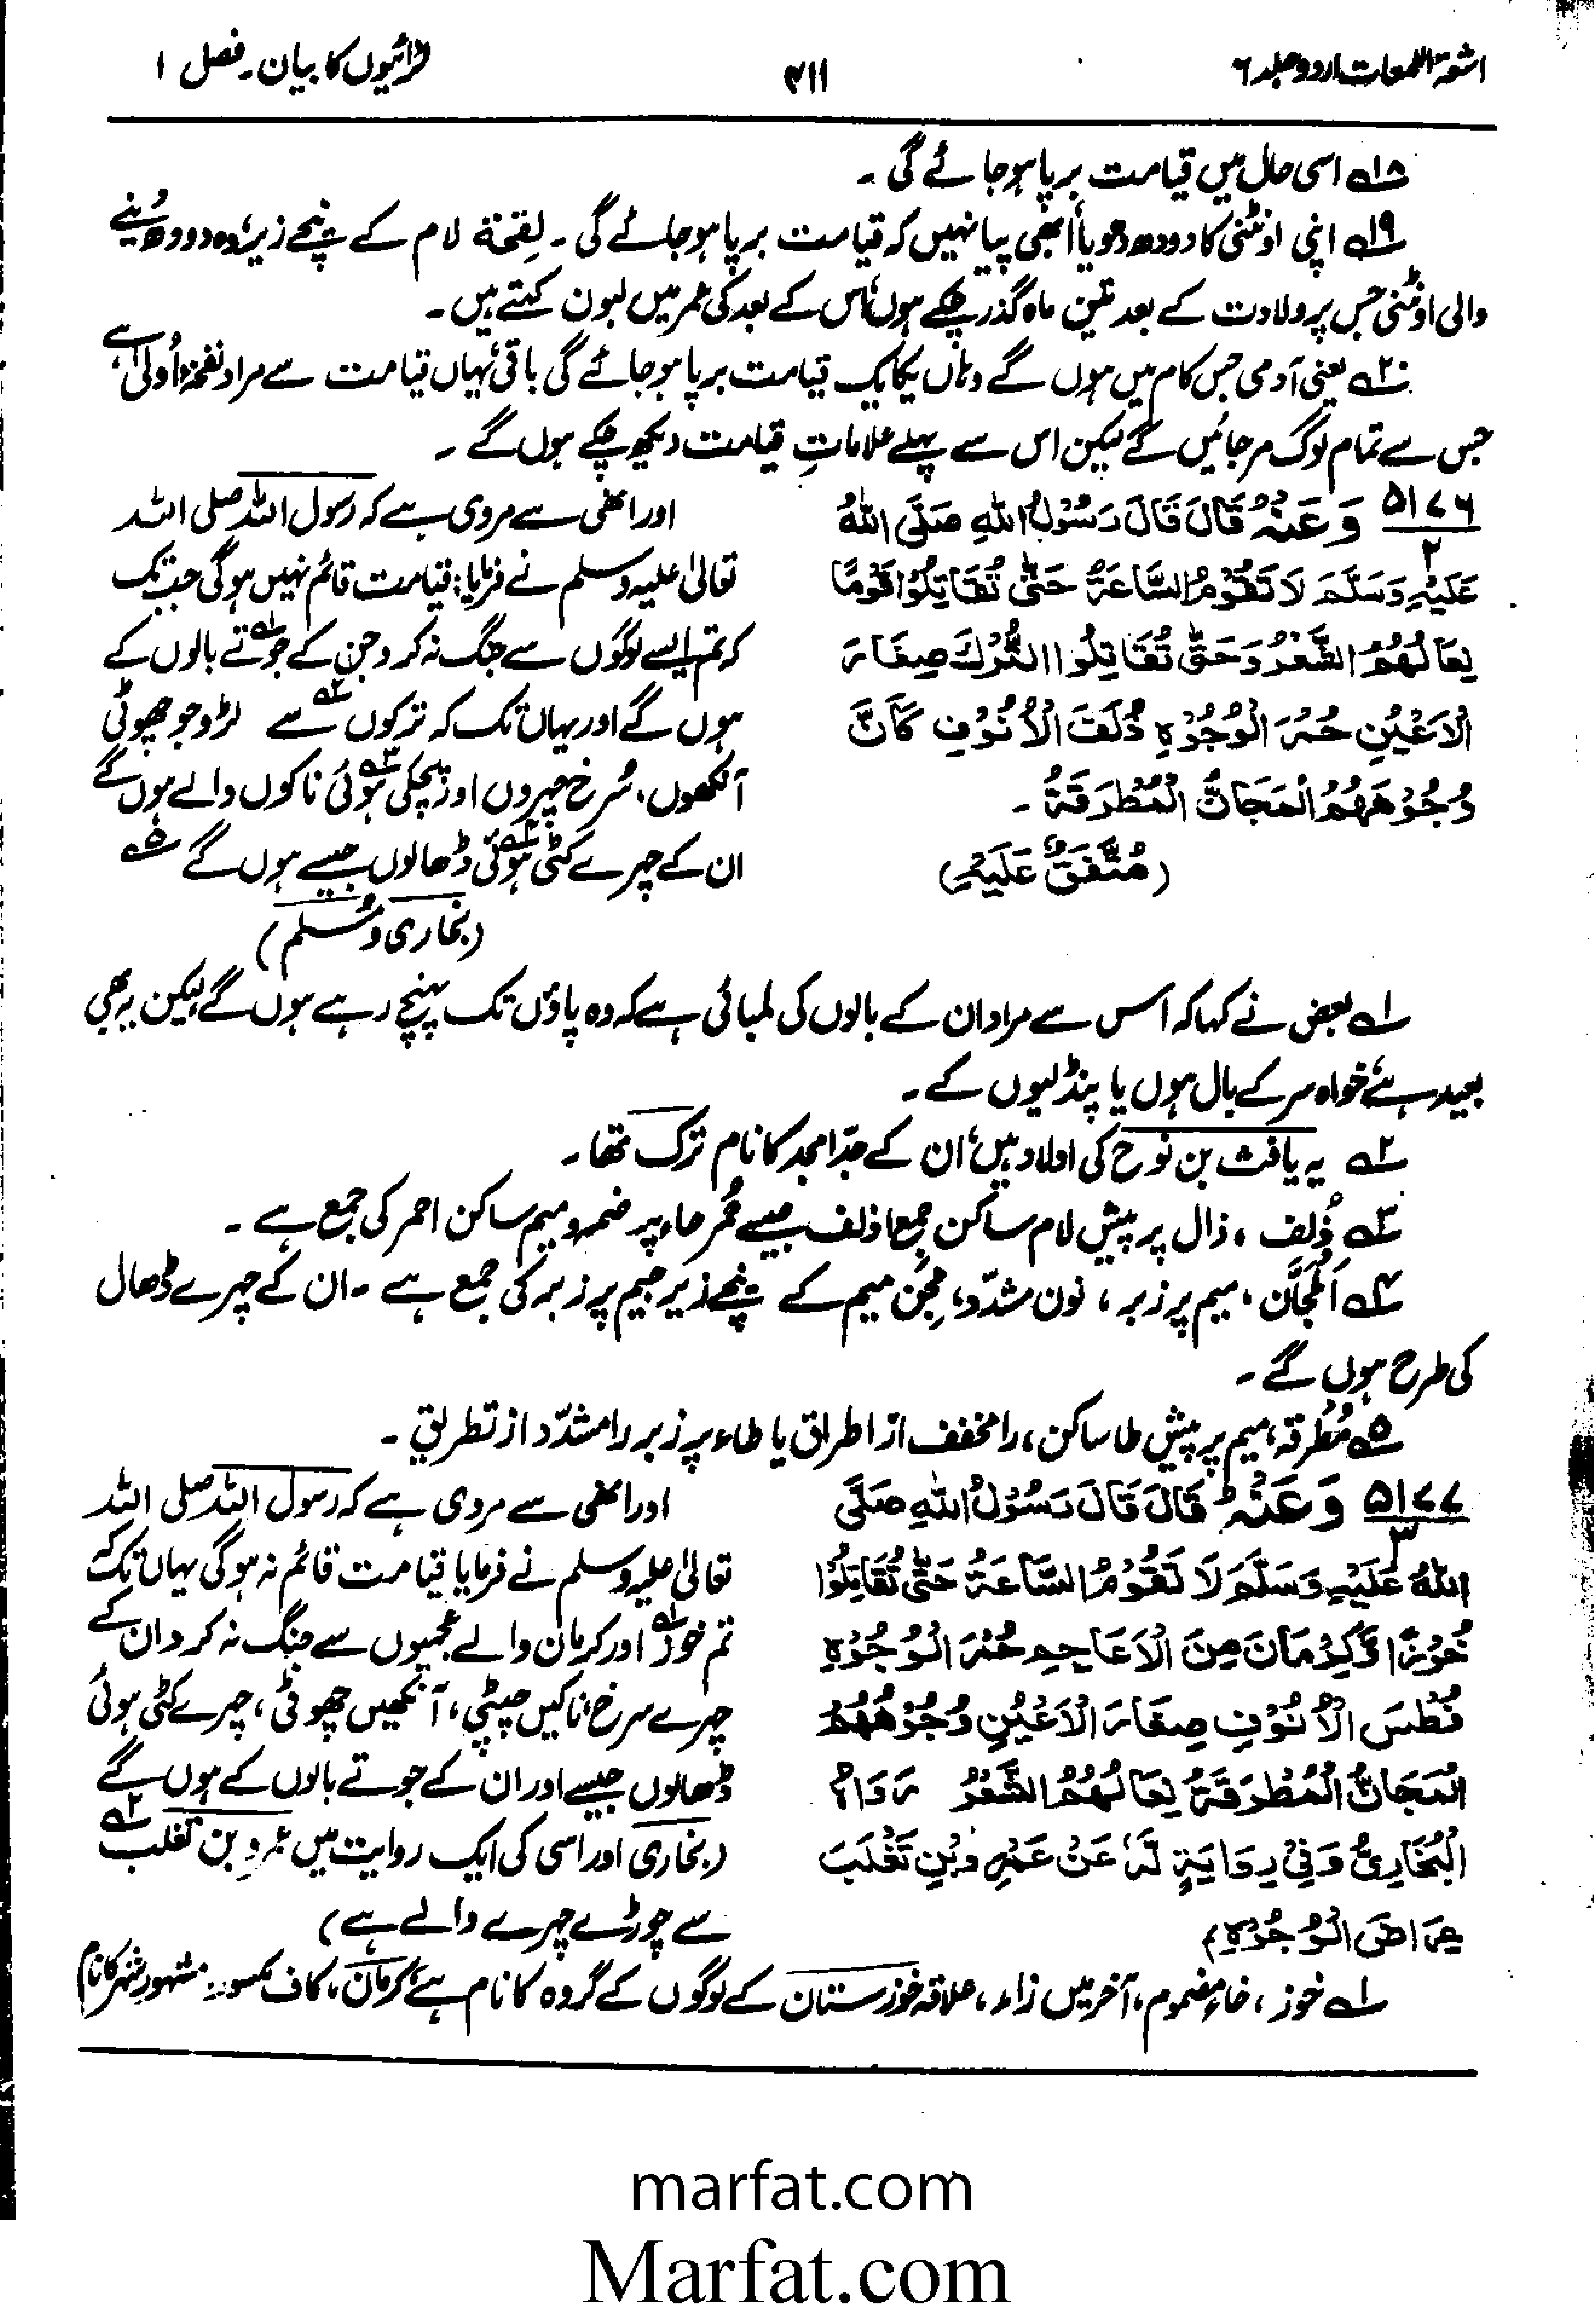 اشعۃ اللمعات اردو جلد ۶
۴۱۱
لڑائیوں کا بیان۔ فصل ۱
۱۸؎ اسی حال میں قیامت برپا ہو جائے گی ۔
۱۹؎ اپنی اونٹنی کا دودھ دھویا، ابھی پیا نہیں کہ قیامت برپا ہو جائے گی ۔ لِقحۃ لام کے نیچے زیر، وہ دودھ دینے
والی اونٹنی جس پر ولادت کے بعد تین ماہ گذر چکے ہوں، اس کے بعد کی عمر میں لبون کہتے ہیں ۔
۲۰؎ یعنی آدمی جس کام میں ہوں گے وہاں یکایک قیامت برپا ہو جائے گی باقی، یہاں قیامت سے مراد نفخۂ اُولیٰ ہے
جس سے تمام لوگ مر جائیں گے لیکن اس سے پہلے علاماتِ قیامت دیکھ چکے ہوں گے ۔
۵۱۷۶ / ۲ وَعَنْہُ قَالَ قَالَ رَسُوْلُ اللّٰہِ صَلَّی اللّٰہُ
عَلَیْہِ وَسَلَّمَ لَا تَقُوْمُ السَّاعَۃُ حَتّٰی تُقَاتِلُوْا قَوْمًا
نِعَالُہُمُ الشَّعْرُ وَحَتّٰی تُقَاتِلُوا التُّرْکَ صِغَارَ
الْاَعْیُنِ حُمْرَ الْوُجُوْہِ ذُلْفَ الْاُنُوْفِ کَاَنَّ
وُجُوْہَہُمُ الْمَجَانُّ الْمُطْرَقَۃُ ۔
(مُتَّفَقٌ عَلَیْہِ)
اور انھی سے مروی ہے کہ رسول اللہ صلی اللہ
تعالیٰ علیہ وسلم نے فرمایا: قیامت قائم نہیں ہوگی جب تک
کہ تم ایسے لوگوں سے جنگ نہ کرو جن کے جوتے۱؎ بالوں کے
ہوں گے اور یہاں تک کہ ترکوں۲؎ سے لڑو جو چھوٹی
آنکھوں، سُرخ چہروں اور پچکی ہوئی۳؎ ناکوں والے ہوں گے
ان کے چہرے کٹی ہوئی۴؎ ڈھالوں جیسے ہوں گے ۵؎
(بخاری و مُسلم)
۱؎ بعض نے کہا کہ اس سے مراد ان کے بالوں کی لمبائی ہے کہ وہ پاؤں تک پہنچ رہے ہوں گے لیکن یہ بھی
بعید ہے، خواہ سر کے بال ہوں یا پنڈلیوں کے ۔
۲؎ یہ یافث بن نوح کی اولاد ہیں، ان کے جدّ امجد کا نام ترک تھا ۔
۳؎ ذُلف ، ذال پر پیش لام ساکن جمع اذلف جیسے حُمر حاء پر ضمہ و میم ساکن احمر کی جمع ہے ۔
۴؎ اَلمَجَانّ ، میم پر زبر ، نون مشدّد، مِجَن میم کے نیچے زیر جیم پر زبر کی جمع ہے ۔ ان کے چہرے ڈھال
کی طرح ہوں گے ۔
۵؎ مُطرقہ، میم پر پیش طا ساکن، را مخفف از اطراق یا طاء پر زبر را مشدّد از تطریق ۔
۵۱۷۷ / ۳ وَعَنْہُ قَالَ قَالَ رَسُوْلُ اللّٰہِ صَلَّی
اللّٰہُ عَلَیْہِ وَسَلَّمَ لَا تَقُوْمُ السَّاعَۃُ حَتّٰی تُقَاتِلُوْا
خُوْزًا وَّکِرْمَانَ مِنَ الْاَعَاجِمِ حُمْرَ الْوُجُوْہِ
فُطْسَ الْاُنُوْفِ صِغَارَ الْاَعْیُنِ وُجُوْہُہُمُ
الْمَجَانُّ الْمُطْرَقَۃُ نِعَالُہُمُ الشَّعْرُ رَوَاہُ
الْبُخَارِیُّ وَفِیْ رِوَایَۃٍ لَّہٗ عَنْ عَمْرِو بْنِ تَغْلَبَ
عِرَاضَ الْوُجُوْہِ
اور انھی سے مروی ہے کہ رسول اللہ صلی اللہ
تعالیٰ علیہ وسلم نے فرمایا قیامت قائم نہ ہوگی یہاں تک کہ
تم خوز۱؎ اور کرمان والے عجمیوں سے جنگ نہ کرو ان کے
چہرے سرخ، ناکیں چپٹی، آنکھیں چھوٹی، چہرے کٹی ہوئی
ڈھالوں جیسے اور ان کے جوتے بالوں کے ہوں گے
(بخاری اور اسی کی ایک روایت میں عمرو بن تغلب۲؎
سے چوڑے چہرے والے ہے)
۱؎ خوز ، خاء مضموم، آخر میں زاء، علاقہ خوزستان کے لوگوں کے گروہ کا نام ہے، کرمان، کاف مکسور، مشہور شہر کا نام
marfat.com
Marfat.com